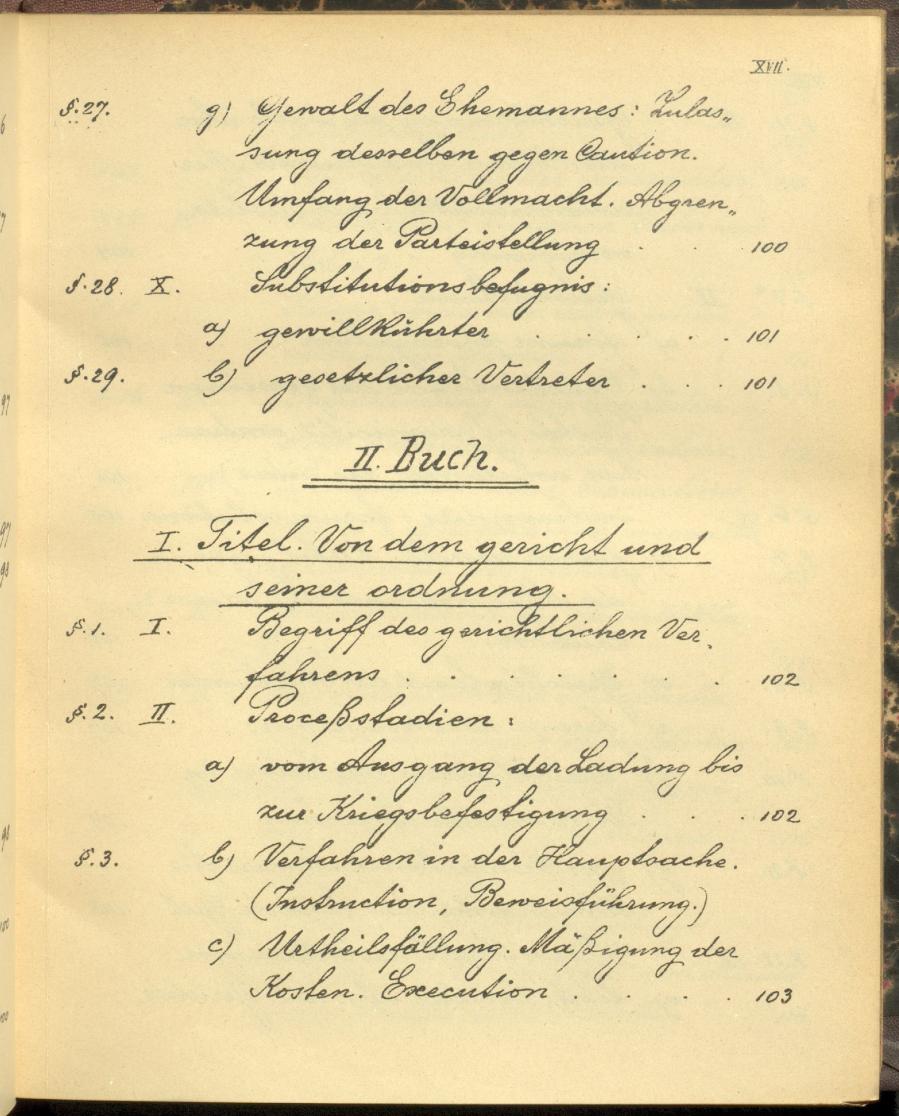 XVII.
§.27. g) Gewalt des Ehemannes: Zulas„
sung desselben gegen Caution.
Umfang der Vollmacht. Abgren„
zung der Parteistellung . . . 100
§.28. X. Substitutionsbefugnis:
a) gewillkührter . . . . . 101
§.29. b) gesetzlicher Vertreter . . . 101
II. Buch.
I. Titel. Von dem gericht und
seiner ordnung.
§.1. I. Begriff des gerichtlichen Ver„
fahrens . . . . . . . 102
§.2. II. Proceßstadien:
a) vom Ausgang der Ladung bis
zur Kriegsbefestigung . . . 102
§.3. b) Verfahren in der Hauptsache.
(Instruction, Beweisführung.)
c) Urtheilsfällung. Mäßigung der
Kosten. Execution . . . . 103